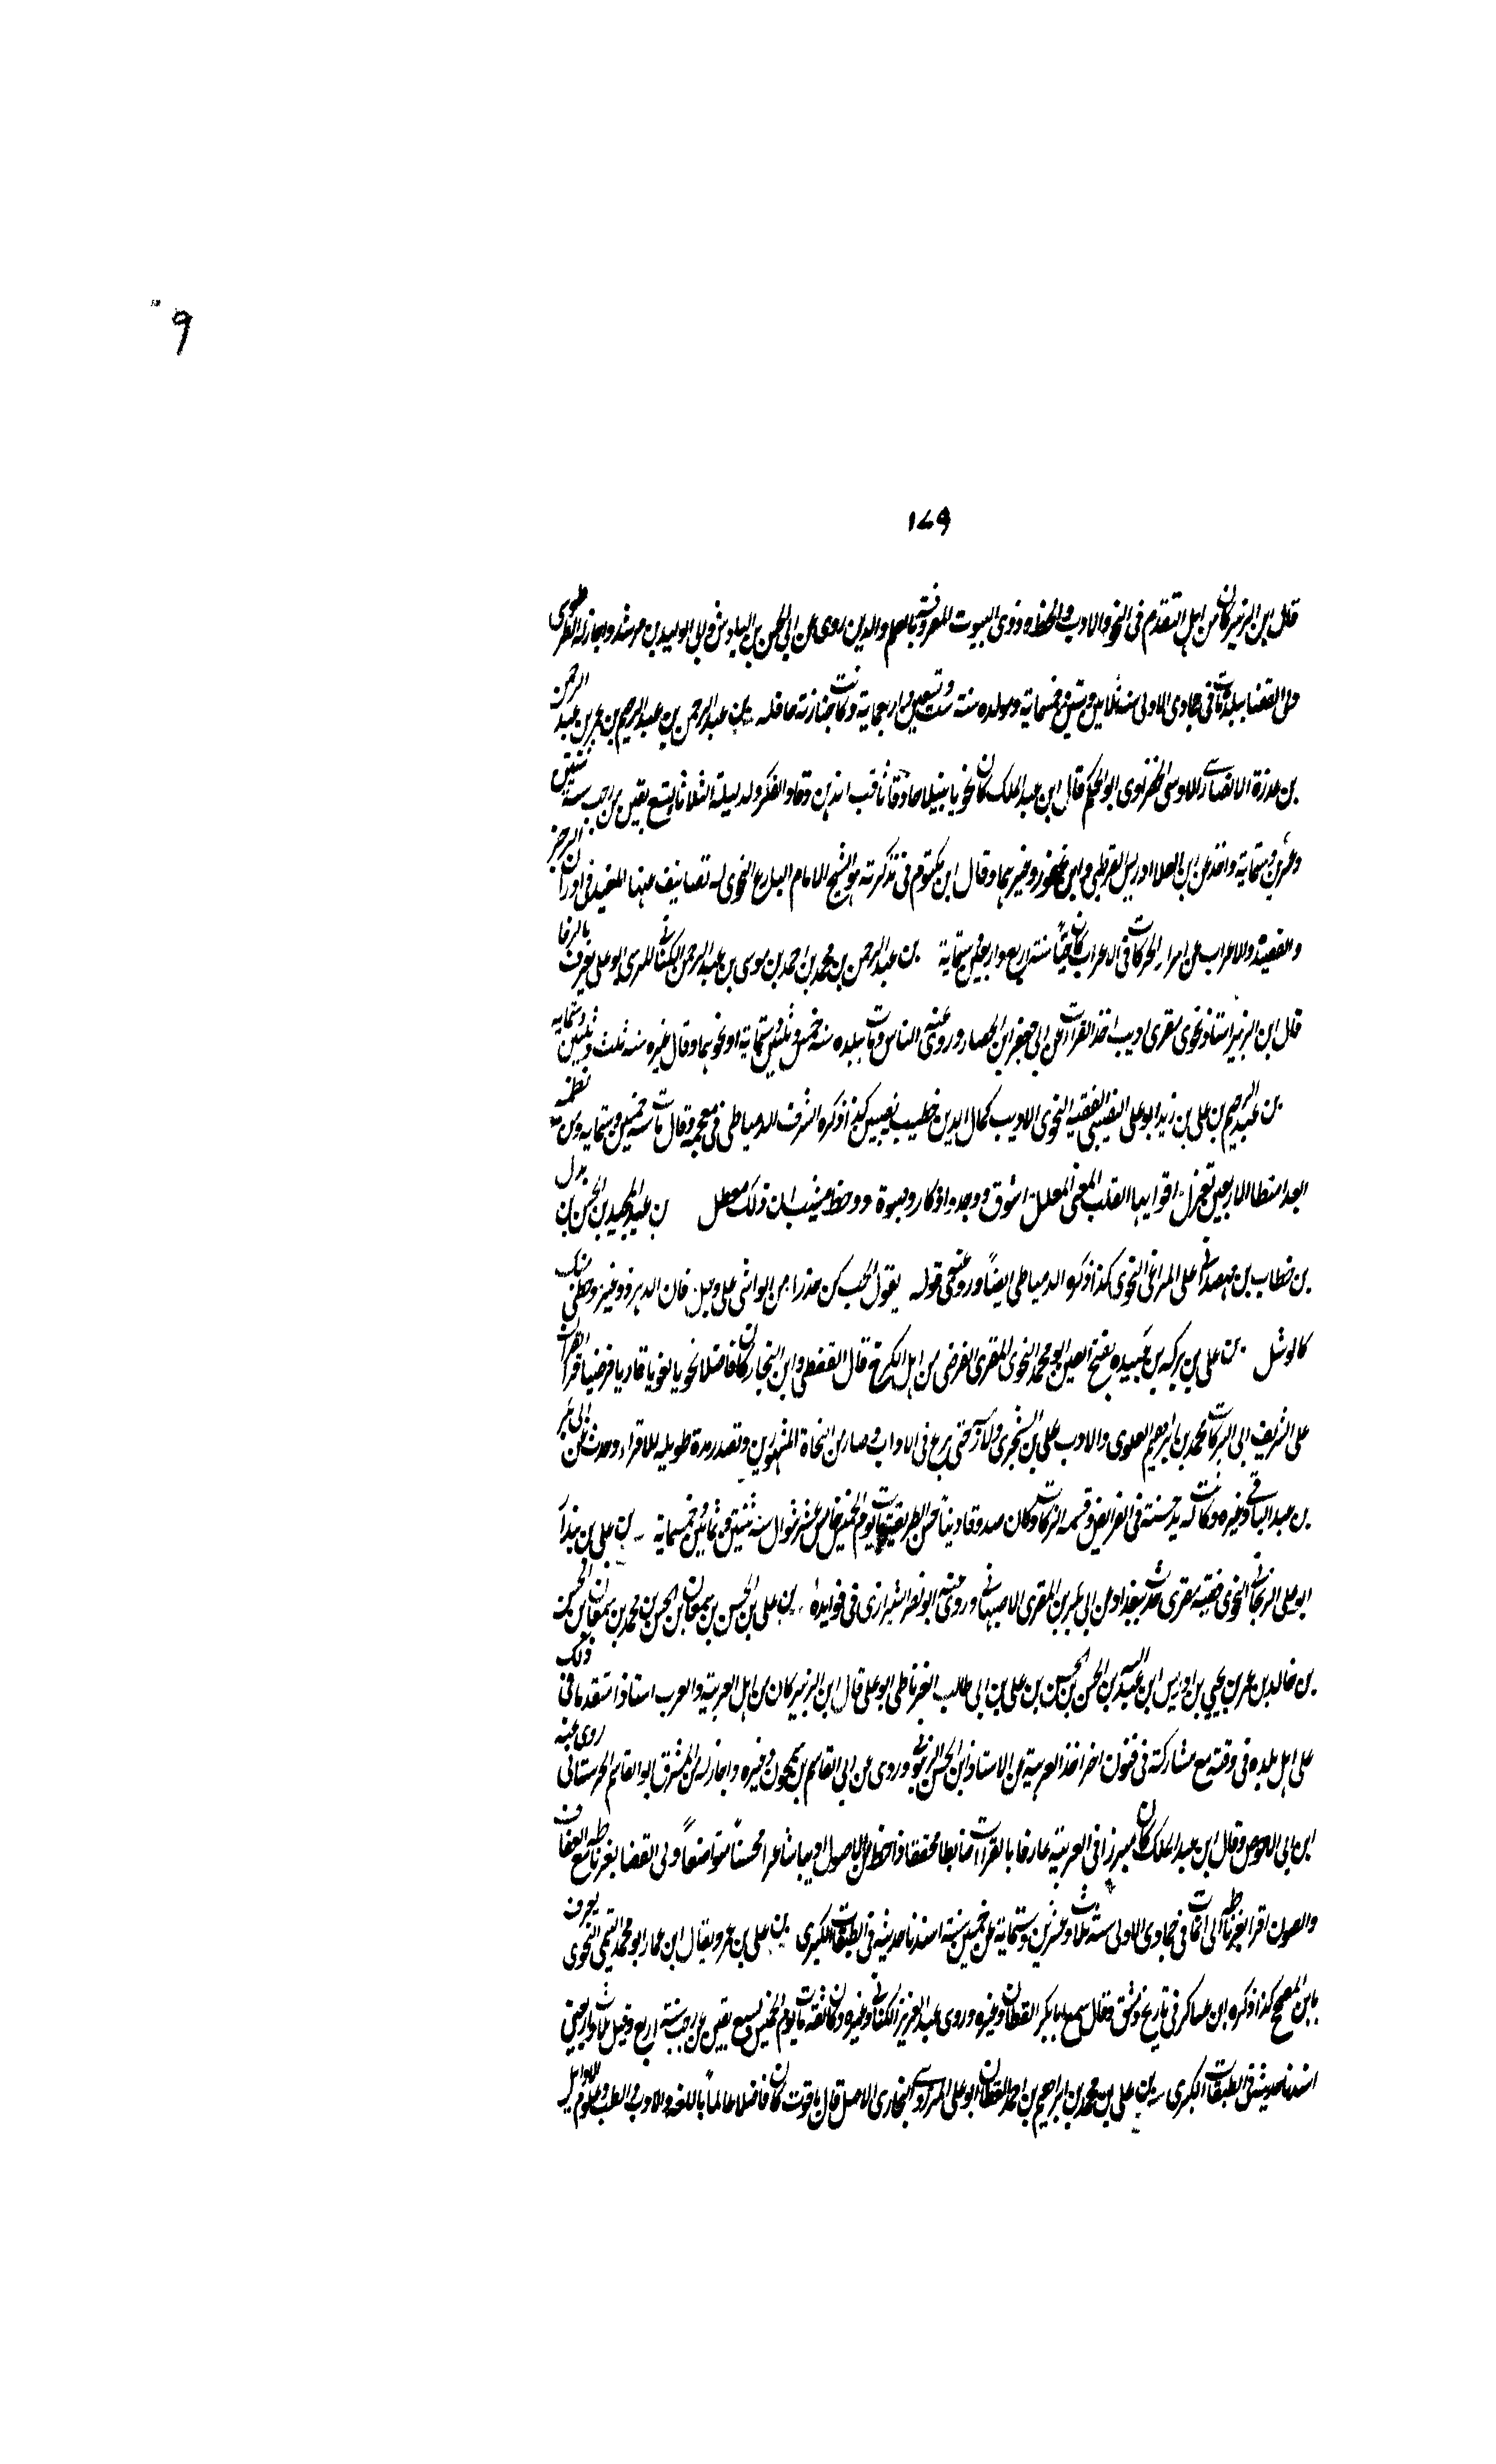 ۹
۱۷۹
قال ابن الزبير كان من اهل التقدم فى النحو والادب والحفظ وذوى البيوت المعروفة بالعلم والدين روى عن ابى الحسن بن الباذش وابى الوليد بن رشد واجاز له الطرطوشى
ولى القضا ببلده مات فى جمادى الاولى سنة ثلاث وستين وخمسماية ومولده سنة ست وتسعين واربعماية وكانت جنازته حافلة بن عبد الرحمن بن عبد الرحيم بن عمر بن عبد الرحمن
بن عذرة الانصارى الاوسى الخضراوى ابو الحكم قال ابن عبد الملك كان نحويا نبيلا حاذقا ثاقب الذهن وقاد الفكر ولد ليلة الثلاثا لتسع بقين من رجب سنة ثنتين
وعشرين وستماية واخذ عن ابى العلا ادريس القرطبى وابن عصفور وغيرهما وقال ابن مكتوم فى تذكرته هو الشيخ الامام البارع النحوى له تصانيف منها المفيد فى اوزان الرجز
والقصيد والاعراب عن اسرار الحركات فى الاعراب كان حيا سنة اربع واربعين وستماية بن عبد الرحمن بن محمد بن احمد بن موسى بن عبد الرحمن الكنانى المرسى ابو على يعرف بالرفا
قال ابن الزبير استاذ نحوى مقرى اديب اخذ القراات عن ابى جعفر ابن الحصار وروى عنه الناس ومات ببلده سنة خمس وثلثين وستماية او نحوها وقال غيره سنة ثلث وثلثين وستماية
بن عبد الرحيم بن على بن زيد ابو على النصيبى الفقيه النحوى الاديب كمال الدين خطيب نصيبين كذا ذكره الشرف الدمياطى فى معجمه وقال مات سنة خمسين وستماية ومن نظمه
ابعد انقضا الاربعين تعزل اقوا يها القلب المعنى المعلل اشوق ووجد واذكار وصبوة ووخط مشيب ان ذلك معضل بن عبد المجيد بن الحسن بن بدل
بن خطاب بن مهصد ابو على المراغى النحوى كذا ذكره الدمياطى ايضا وروى عنه قوله يقول الحب كن حذرا من الواشى على وجل فان الدهر ذو غير وحظى منك
كالوشل بن على بن بركه بن عبيده بفتح العين ابو محمد النحوى المقرى الفرضى من اهل الكرخ قال القفطى وابن النجار كان فاضلا نحويا لغويا قاريا فرضيا قرا القران
على الشريف ابى البركات محمد بن ابراهيم العلوى والادب على بن الشجرى ولازمه حتى برع فى الاداب وصار من النحاة المشهورين وتصدر مدة طويلة للاقراء وحدث عن ابى بكر
بن عبد الباقى وغيره وكانت له يد حسنة فى الفرايض وقسمة التركات وكان صدوقا دينا حسن الطريقة مات يوم الخميس خامس عشر شوال سنة ثنتين وثمانين وخمسماية بن على بن بندار
ابو على الزنجانى النحوى فقيه مقرى حدث ببغداد عن ابى بكر بن المقرى الاصبهانى وروى عنه ابو نصر الشيرازى فى فوايده بن على بن الحسن بن سمعان بن الحسن بن محمد بن سمعان بن الحسن
بن خالد بن عمر بن يحيى بن ادريس ابن عبد الله بن الحسن بن الحسين بن على بن ابى طالب الغرناطى ابو على قال ابن الزبير كان من اهل العربية والعرب استاذا متقدما فى ذلك
على اهل بلده فى وقته مع مشاركة فى فنون اخر اخذ العربية من الاستاذ ابن الحسن وروى عن ابى القاسم بن سمجون وغيره واجاز له من المشرق ابو القاسم الحرستانى روى عنه
ابن ابى الاحوص وقال ابن عبد الملك كان مبرزا فى العربية عارفا بالقراات ضابطا محققا اديبا شاعرا محسنا متواضعا ولى القضا بغرناطة مع العفاف
والصون اقرا بغرناطة الى ان مات فى جمادى الاولى سنة ثلاث وعشرين وستماية عن خمسين سنة اسندنا حديثه فى الطبقات الكبرى بن على بن عمر ويقال ابن عمار ابو محمد التيمى النحوى يعرف
بابن المصحح كذا ذكره ابن عساكر فى تاريخ دمشق وقال سمع ابا بكر القطان وغيره وروى عبد العزيز الكنانى وغيره وكان ثقة مات يوم الخميس لسبع بقين من رجب سنة اربع وقيل ثلاث واربعين
اسندنا حديثه فى الطبقات الكبرى بن على بن محمد بن ابراهيم بن احمد القطان ابو على المروزى البخارى الاصل قال ياقوت كان فاضلا عالما باللغة والادب والطب وعلوم الاوايل